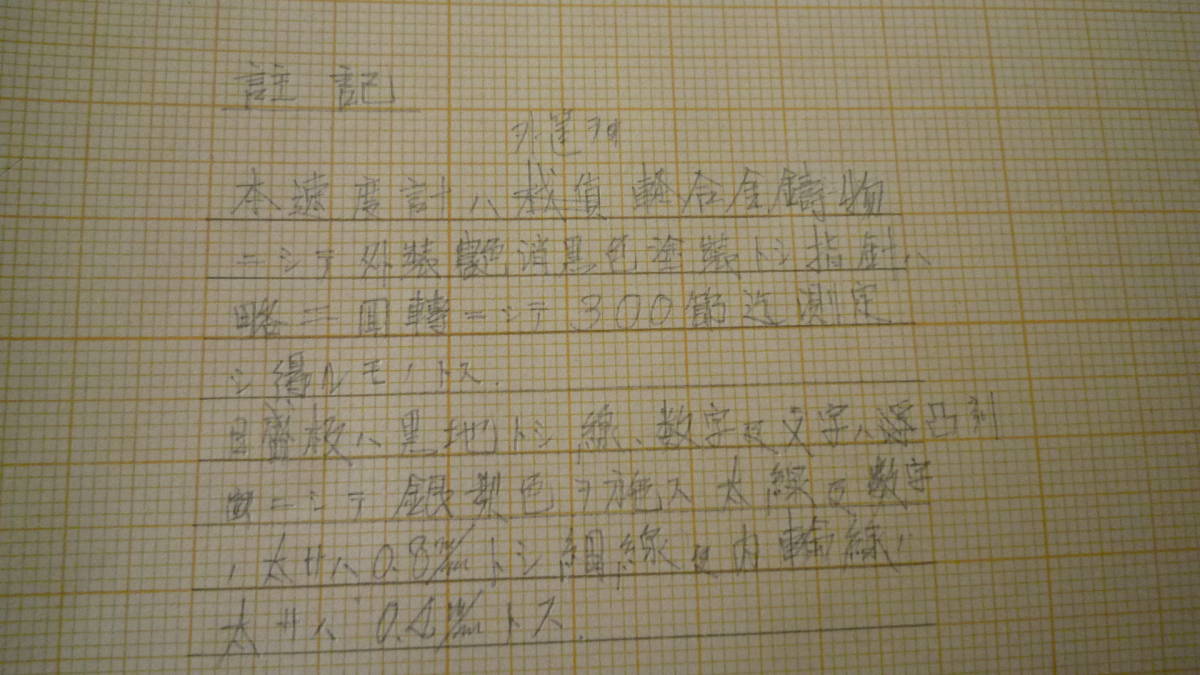 註記
外筐ヲ
本速度計ハ材質軽合金鋳物
ニシテ外装艶消黒色塗装トシ指針ハ
略二回轉ニシテ300節迄測定
シ得ルモノトス.
目盛板ハ黒地トシ線、数字及文字ハ凸刻
ニシテ銀梨色ヲ施ス太線及数字
ノ太サハ0.8㍉トシ細線及内輪線ノ
太サハ0.4㍉トス.